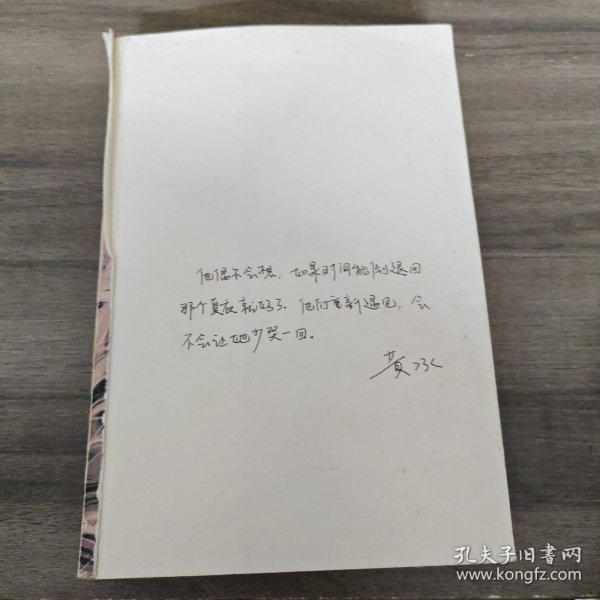 他偶尔会想，如果时间能倒退回
那个夏夜就好了。他们重新遇见，会
不会让她少哭一回。
黄
孔夫子旧书网
www.kongfz.com